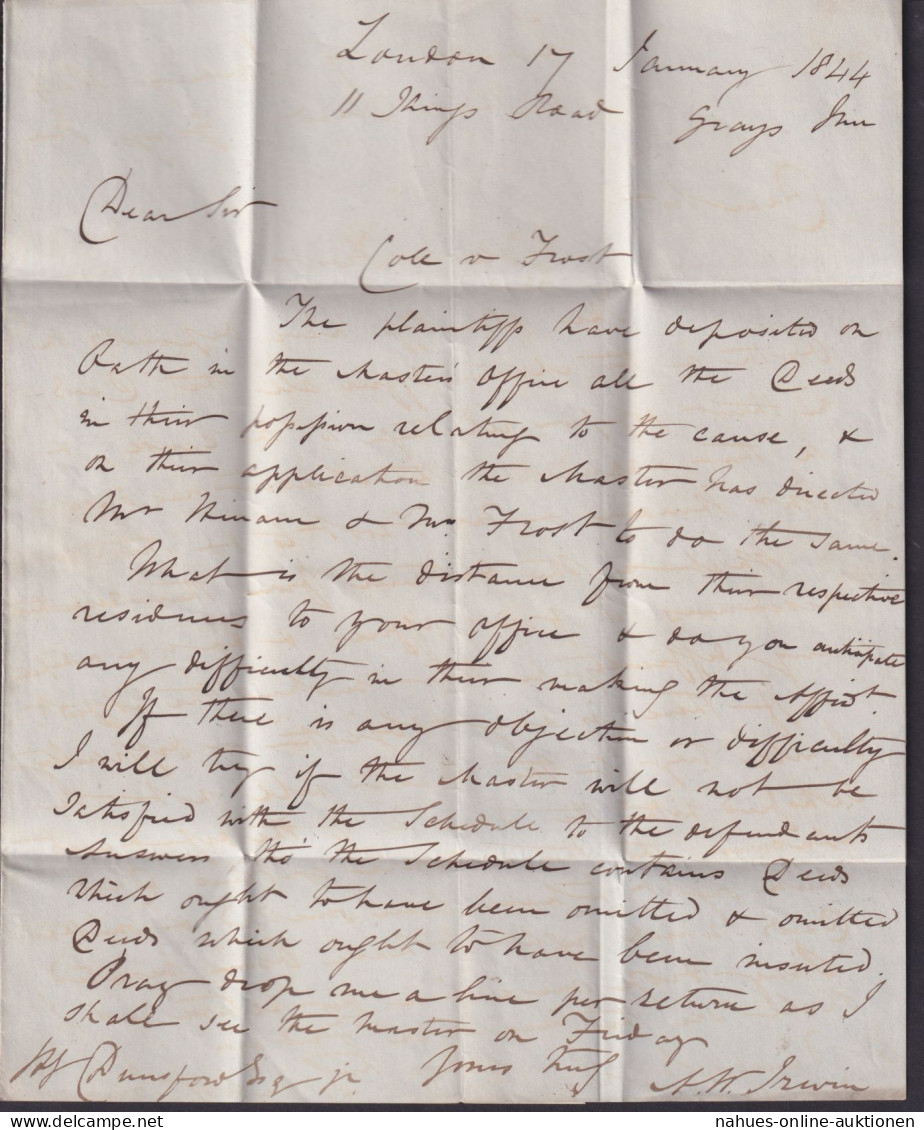 London 17 January 1844
11 Kings Road Grays Inn
Dear Sir
Cole v Frost
The plaintiffs have deposited on
Oath in the Masters Office all the Deeds
in their possession relating to the cause, &
on their application the Master has directed
Mr & Mrs Frost to do the same.
What is the distance from their respective
residences to your office & do you anticipate
any difficulty in their making the Affidt.
If there is any objection or difficulty
I will try if the Master will not be
satisfied with the Schedule to the defendants
Answer tho' the Schedule contains Deeds
which ought to have been omitted & omitted
Deeds which ought to have been inserted.
Pray drop me a line per return as I
shall see the Master on Friday
Yours truly
Dunsford Esq jr. A. W. Irwin
nahues-online-auktionen